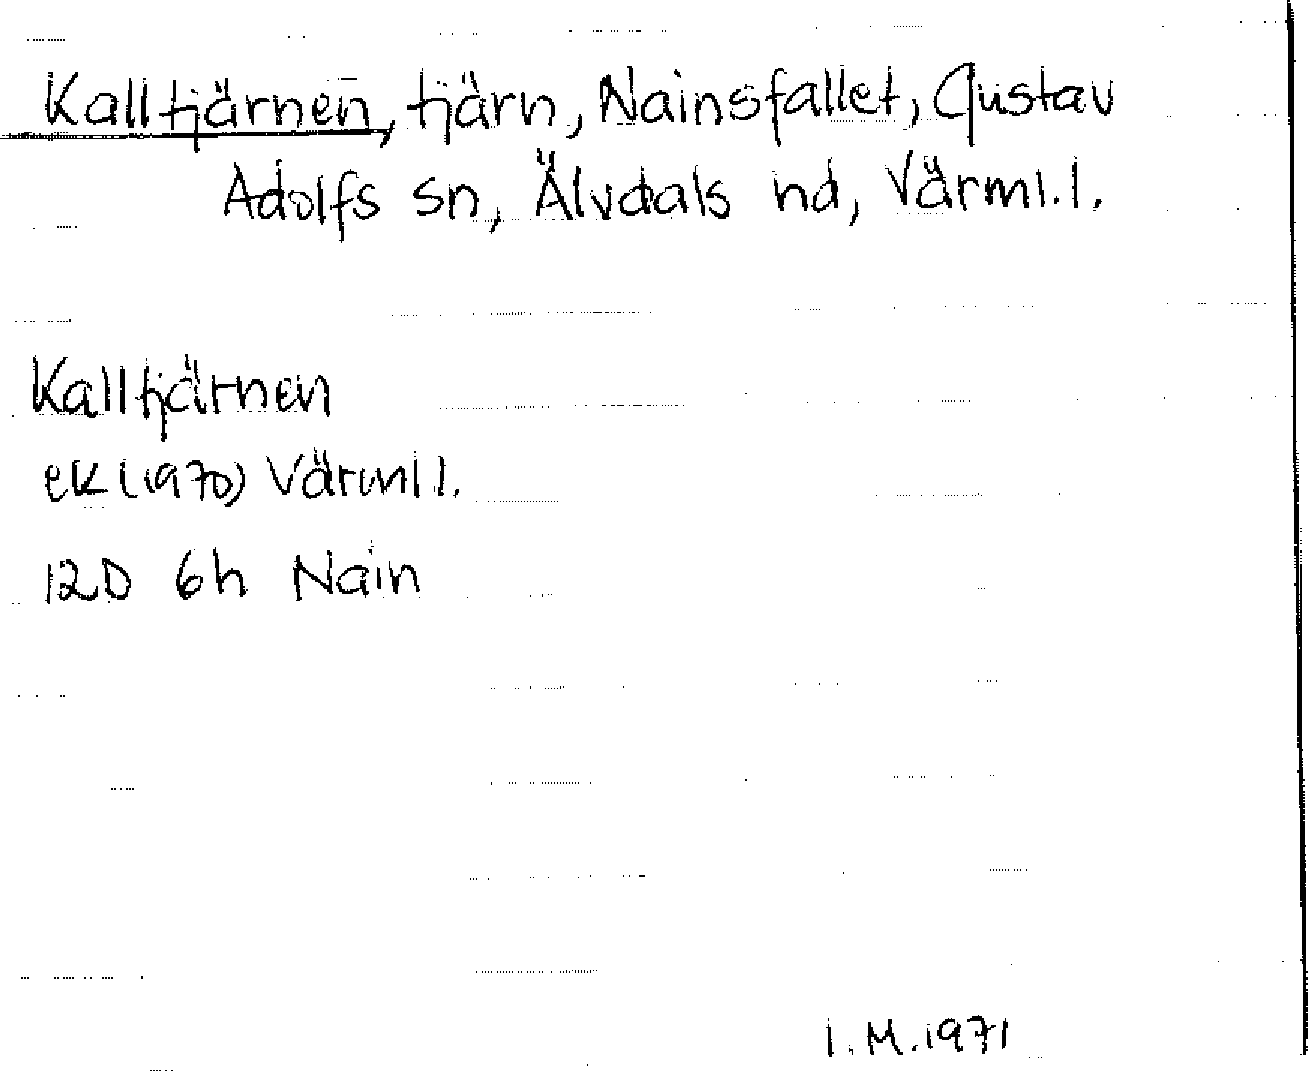 Kalltjärnen, tjärn, Nainsfallet, Gustav
Adolfs sn, Älvdals hd, Värml.l.
Kalltjärnen
ek (1970) Värml l.
12D 6h Nain
I.M.1971